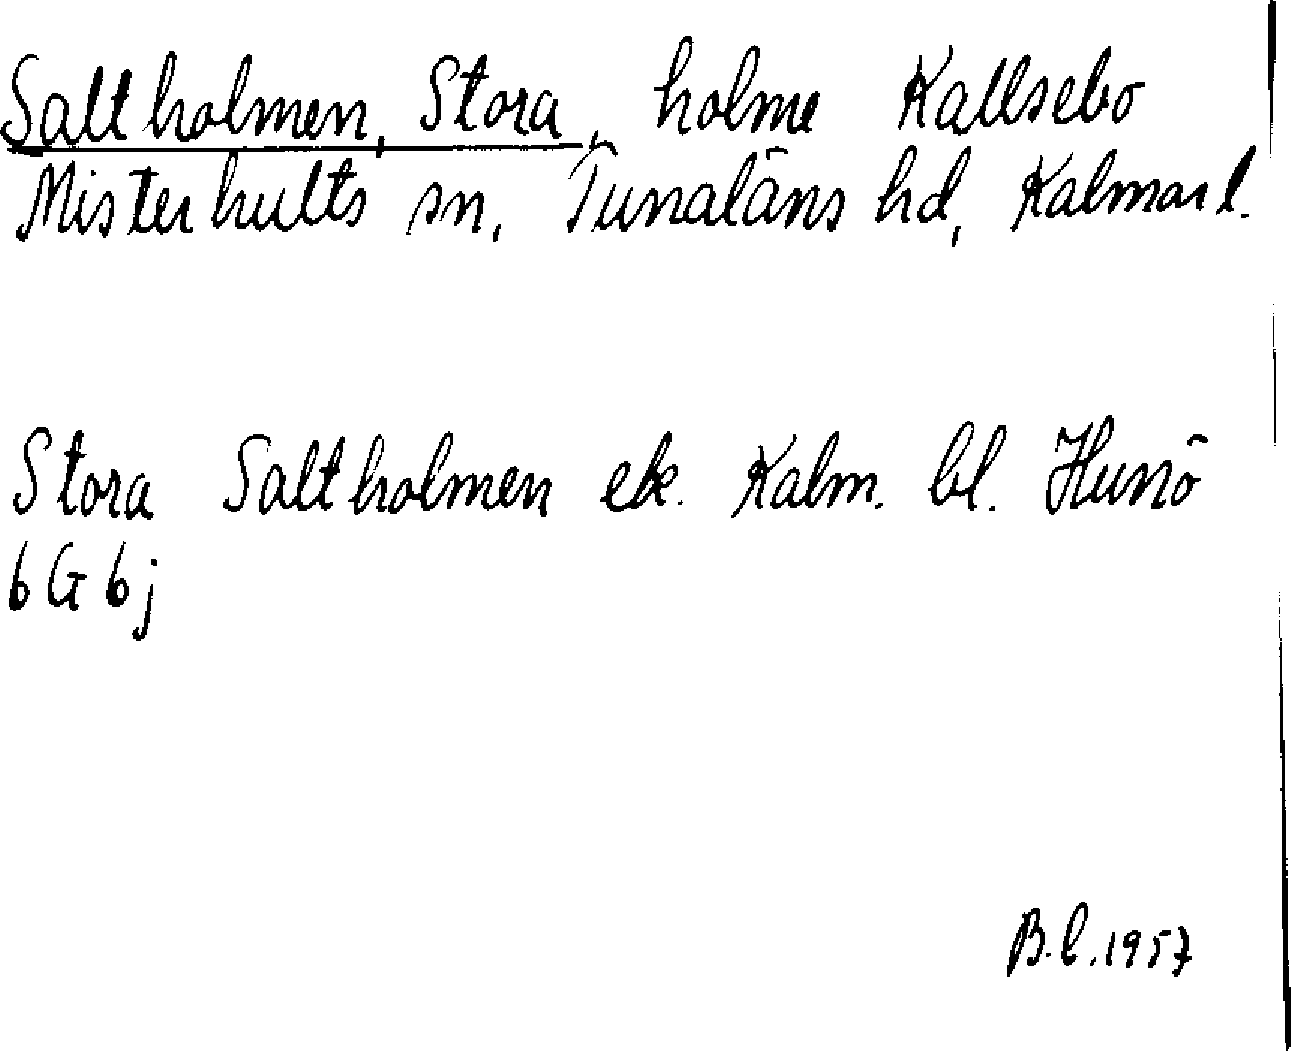 Saltholmen, Stora, holme Kallsebo
Misterhults sn, Tunaläns hd, Kalmar l.
Stora Saltholmen ek. Kalm. bl. Hunö
6 G 6 j
B.L. 1957